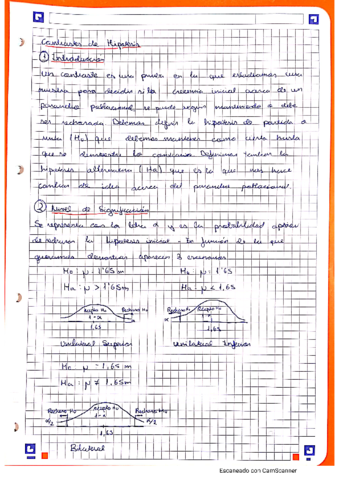 Contrastes de Hipótesis
① Introducción
Un contraste es una prueba en la que estudiamos una
muestra para decidir si la creencia inicial acerca de un
parámetro poblacional, se puede seguir manteniendo o debe
ser rechazada. Debemos definir la hipótesis de partida o
nula (H₀) que debemos mantener como cierta hasta
que se demuestre lo contrario. Definimos también la
hipótesis alternativa (Ha) que es la que nos hace
cambiar de idea acerca del parámetro poblacional.
② Nivel de Significación
Se representa con la letra α y es la probabilidad
de rechazar la hipótesis inicial. En función de lo que
queramos demostrar aparecen 3 escenarios
H₀ : μ = 1'65 m
H₀ : μ = 1'65
Ha : μ > 1'65 m
Ha : μ < 1,65
Acepto H₀
Rechazo H₀
1-α
1,65
Rechazo H₀
Acepto H₀
α
1-α
1,65
Unilateral Superior
Unilateral Inferior
H₀ : μ = 1,65 m
Ha : μ ≠ 1,65 m
Rechazo H₀
Acepto H₀
Rechazo H₀
α/2
1-α
α/2
1,65
Bilateral
Escaneado con CamScanner